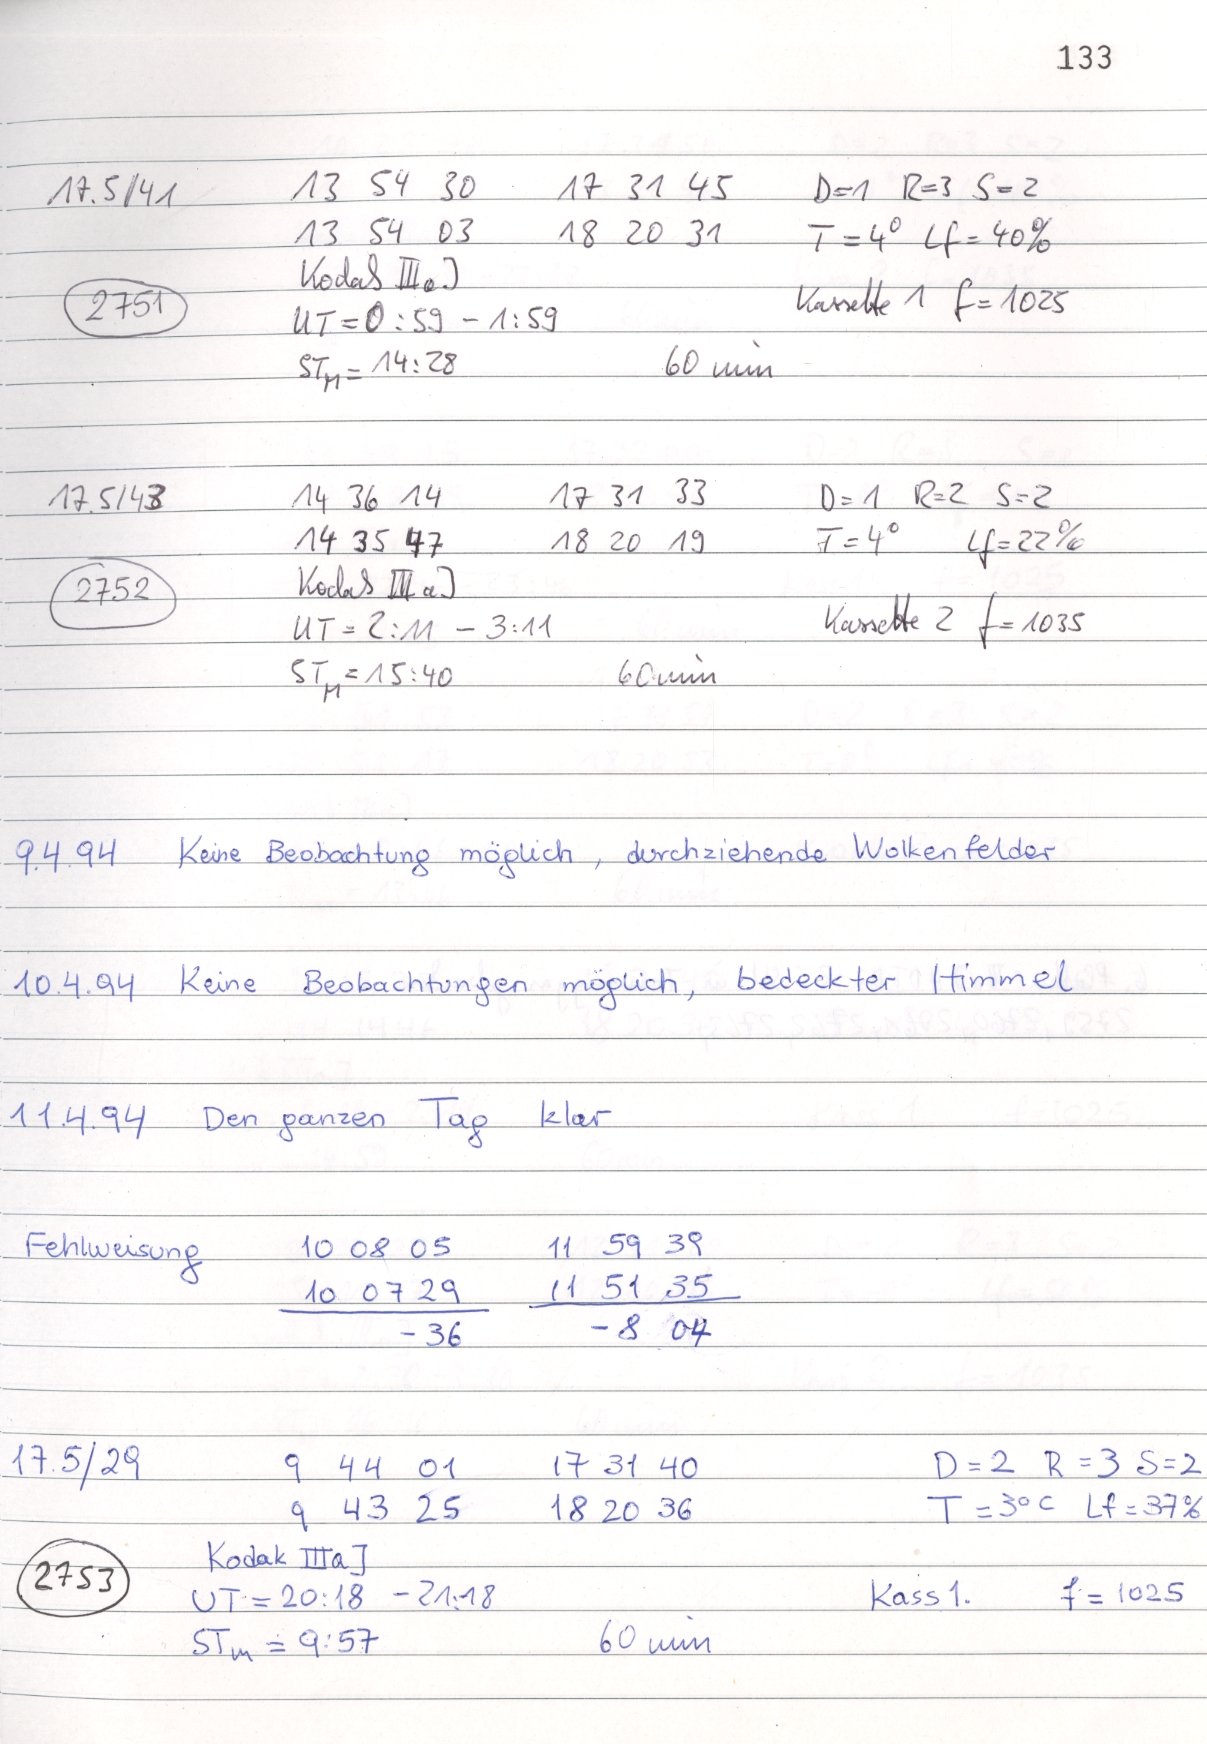 133
17.5/41 13 54 30 17 31 45 D=1 R=3 S=2
13 54 03 18 20 31 T=4° Lf=40%
Kodak IIIaJ
2751 Kassette 1 f=1025
UT=0:59 - 1:59
STM=14:28 60 min
17.5/43 14 36 14 17 31 33 D=1 R=2 S=2
14 35 47 18 20 19 T=4° Lf=22%
Kodak IIIaJ
2752
UT=2:11 - 3:11 Kassette 2 f=1035
STM=15:40 60 min
9.4.94 Keine Beobachtung möglich, durchziehende Wolkenfelder
10.4.94 Keine Beobachtungen möglich, bedeckter Himmel
11.4.94 Den ganzen Tag klar
Fehlweisung 10 08 05 11 59 39
10 07 29 11 51 35
-36 -8 04
17.5/29 9 44 01 17 31 40 D=2 R=3 S=2
9 43 25 18 20 36 T=3°C Lf=37%
Kodak IIIaJ
2753
UT=20:18 - 21:18 Kass 1. f=1025
STm=9:57 60 min